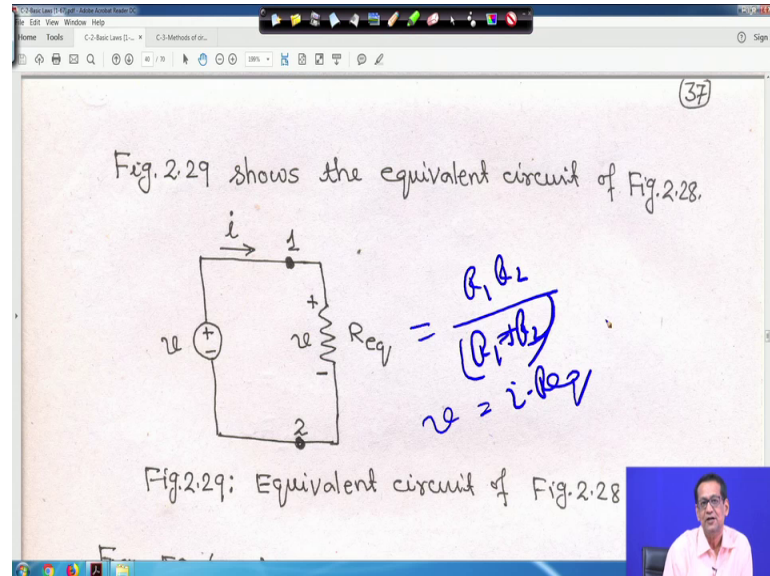 C-2-Basic Laws [1-67].pdf - Adobe Acrobat Reader DC
File Edit View Window Help
Home Tools C-2-Basic Laws [1-... × C-3-Methods of cir...
Sign
40 / 70 199%
37
Fig. 2.29 shows the equivalent circuit of Fig. 2.28.
i
1
+
v + - v Req = R1 R2 / (R1+R2)
-
v = i·Req
2
Fig. 2.29: Equivalent circuit of Fig. 2.28